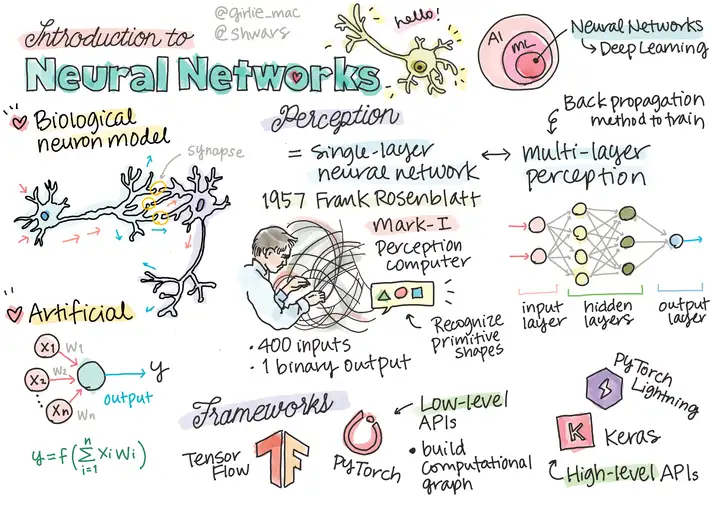 @girlie_mac
@shwars
Introduction to
Neural Networks
hello!
AI
ML
Neural Networks
↳ Deep Learning
Biological
neuron model
synapse
Perception
= Single-layer
neural network
1957 Frank Rosenblatt
Mark-I
Perception
computer
Recognize
primitive
shapes
• 400 inputs
• 1 binary output
↔ multi-layer
perception
Back propagation
method to train
input
layer
hidden
layers
output
layer
Artificial
X1
W1
X2
W2
Xn
Wn
y
output
y = f(∑ⁿᵢ₌₁ Xi Wi)
Frameworks
Tensor
Flow
PyTorch
Low-level
APIs
• build
computational
graph
PyTorch
Lightning
K
Keras
High-level APIs